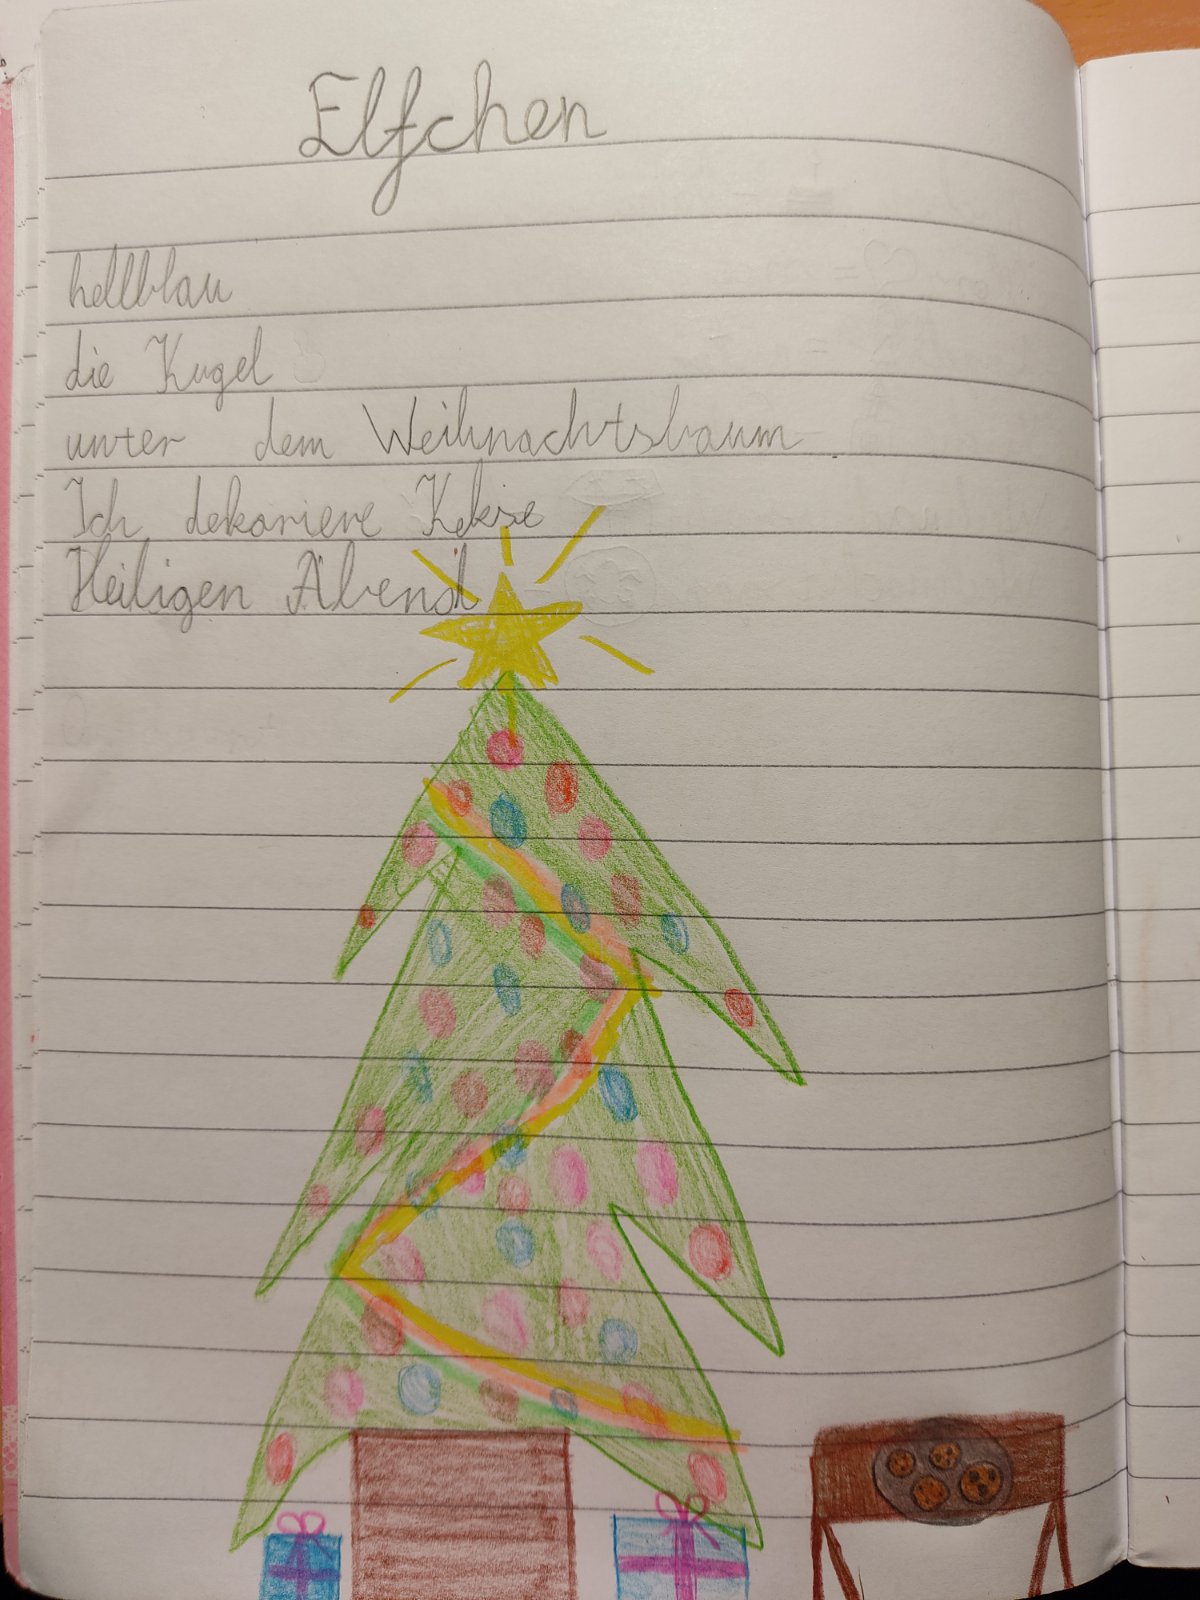 Elfchen
hellblau
die Kugel
unter dem Weihnachtsbaum
Ich dekoriere Kekse
Heiligen Abend